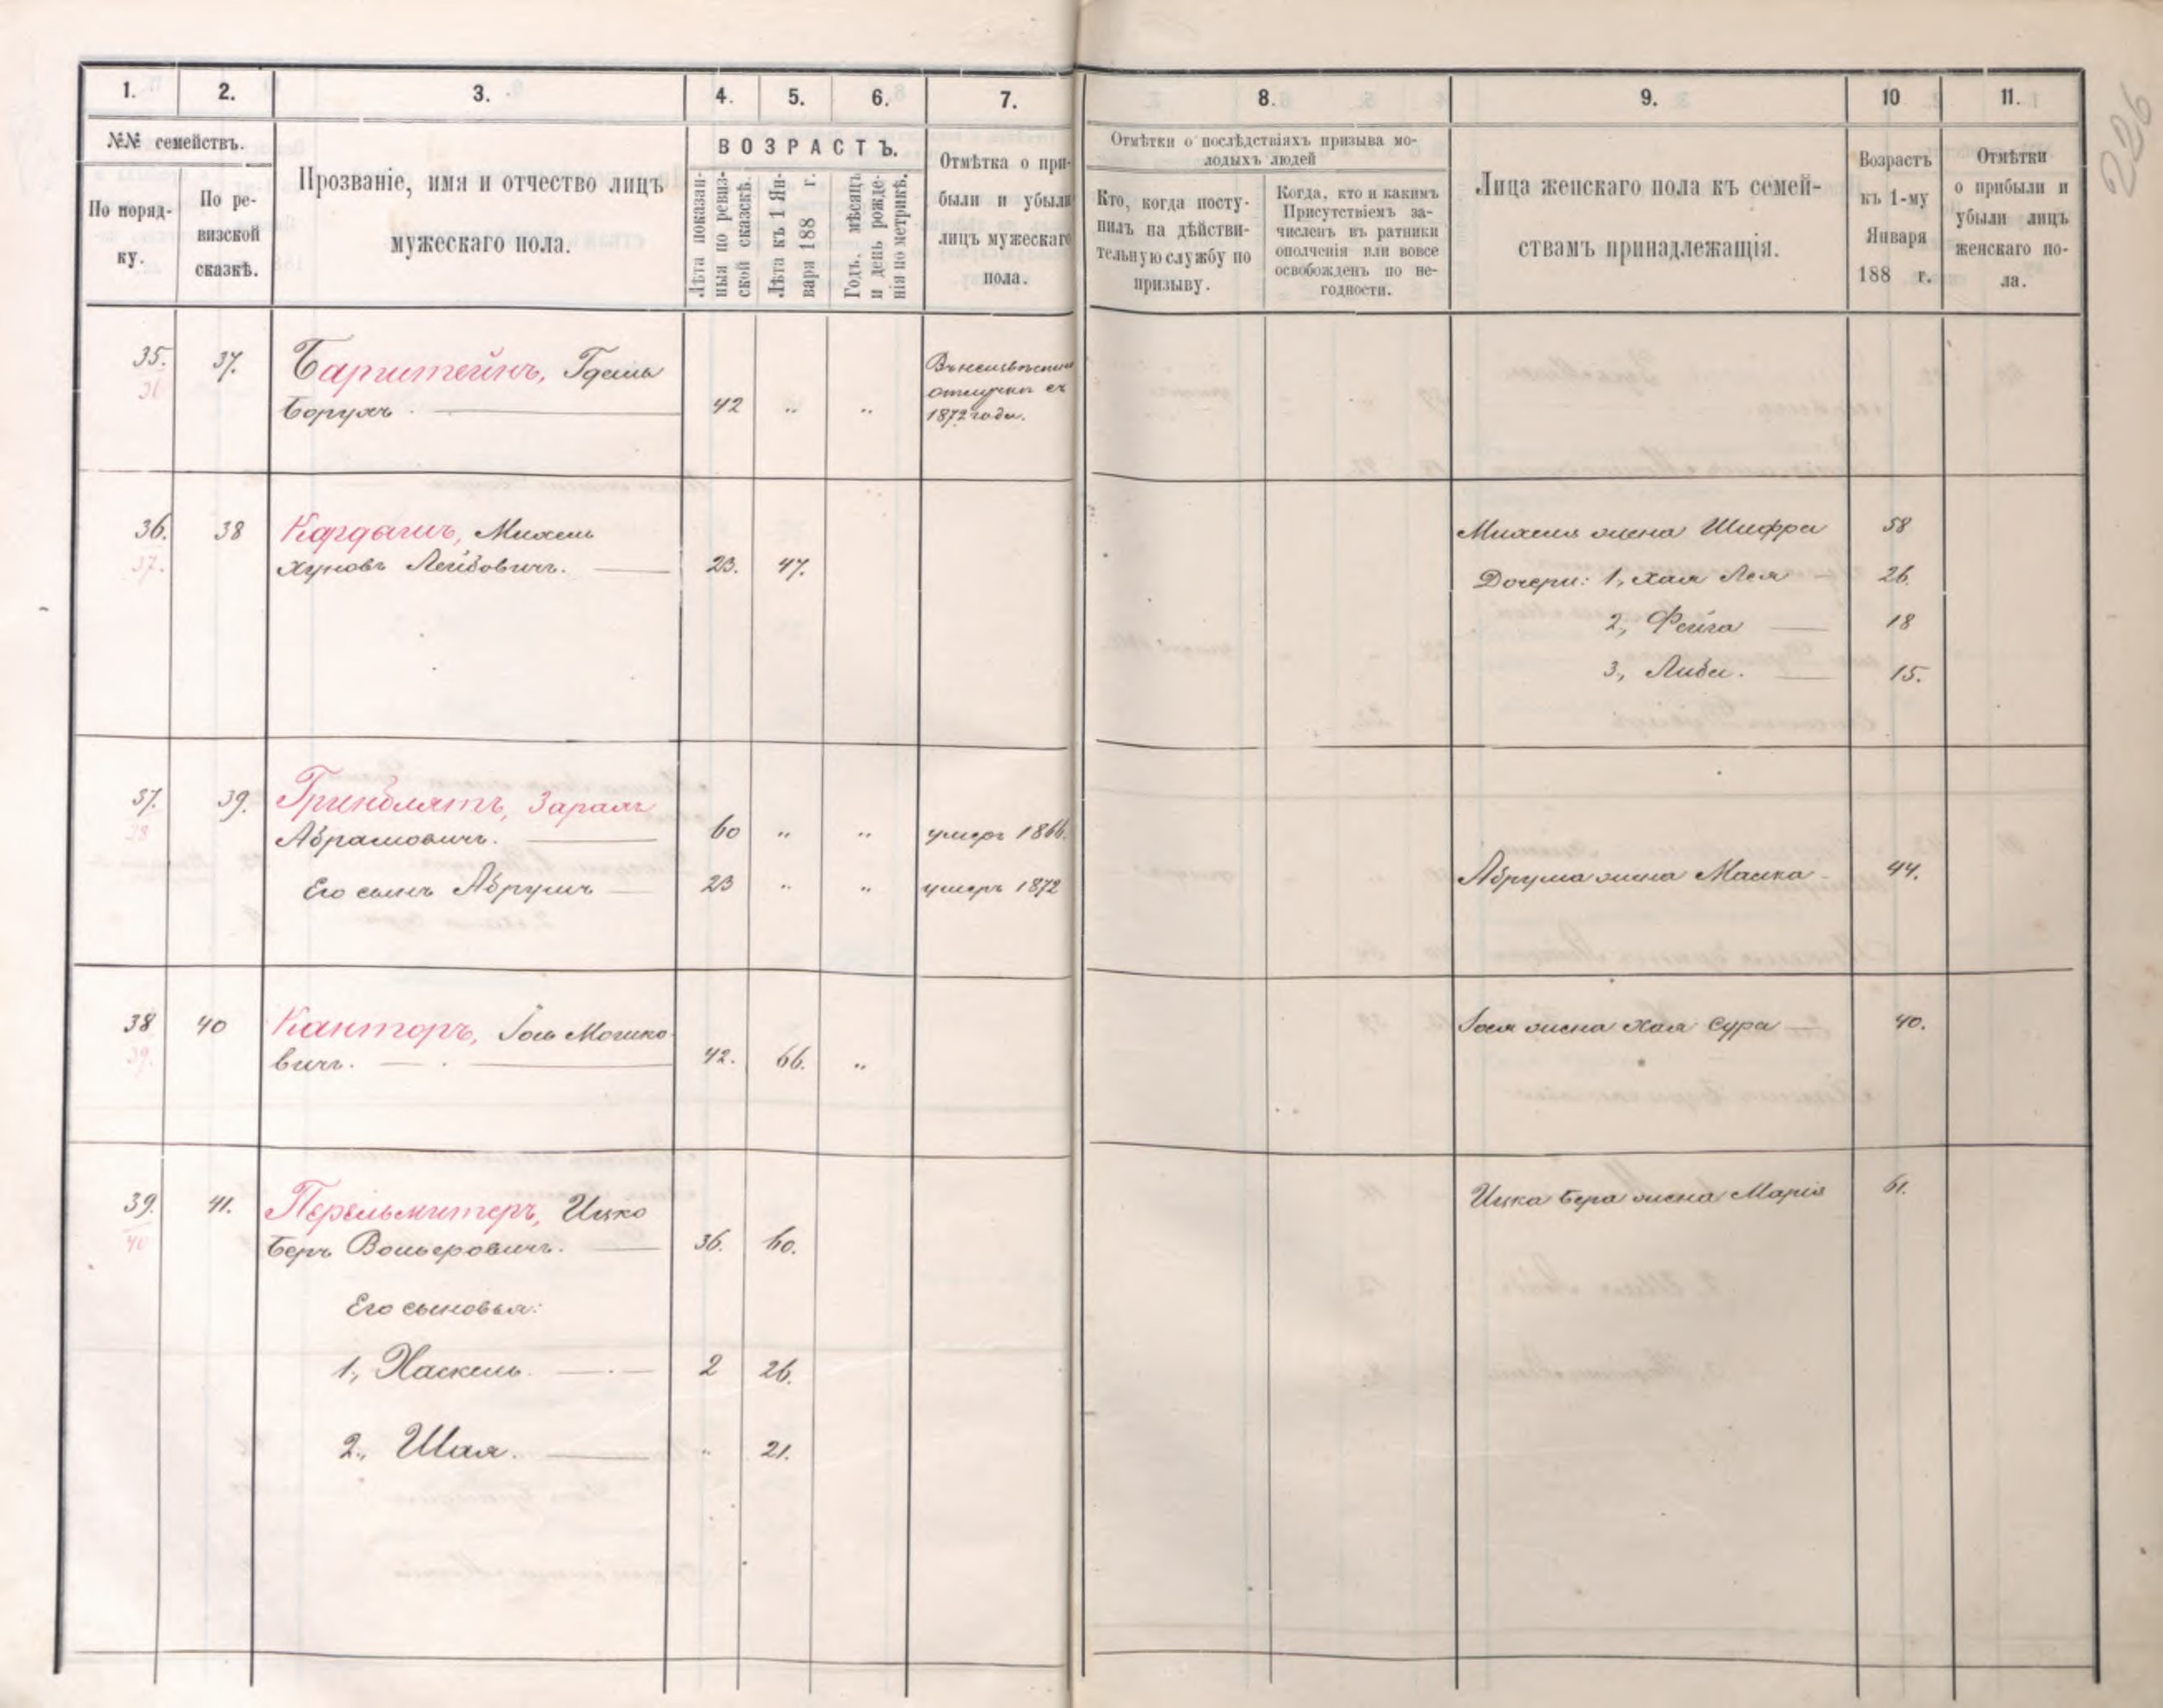 226
1. 2. 3. 4. 5. 6. 7. 8. 9. 10 11.
№№ семействъ.
По поряд-
ку.
По ре-
визской
сказкѣ.
Прозваніе, имя и отчество лицъ
мужескаго пола.
ВОЗРАСТЪ.
Лѣта показан-
ныя по ревиз-
ской сказкѣ.
Лѣта къ 1 Ян-
варя 188 г.
Годъ, мѣсяцъ
и день рожде-
нія по метрикѣ.
Отмѣтка о при-
были и убыли
лицъ мужескаго
пола.
Отмѣтки о послѣдствіяхъ призыва мо-
лодыхъ людей
Кто, когда посту-
пилъ на дѣйстви-
тельную службу по
призыву.
Когда, кто и какимъ
Присутствіемъ за-
численъ въ ратники
ополченія или вовсе
освобожденъ по не-
годности.
Лица женскаго пола къ семей-
ствамъ принадлежащія.
Возрастъ
къ 1-му
Января
188 г.
Отмѣтки
о прибыли и
убыли лицъ
женскаго по-
ла.
35. 37.
Борухъ 42 " "
1872 года.
36. 38 Кардашъ, Михель
37.
Хуновъ Лейбовичъ. 23. 47.
Михеля жена Шифра 58
Дочери: 1, Хая Лея 26.
2, Фейга 18
3, Либа. 15.
37. 39. Гринблятъ, Зарахъ
38
Абрамовичъ. 60 " " умеръ 1866.
Его сынъ Абрумъ 23 " " умеръ 1872
Абрума жена Малка 44.
38 40 Канторъ, Іось Мошко-
39.
вичъ. 42. 66. "
Іося жена Хая Сура 40.
39. 41. Перельмитеръ, Ицко
40
Беръ Вольфовичъ. 36. 60.
Ицка Бера жена Марія 61.
Его сыновья:
1, Хаскель. 2 26.
2, Шая. " 21.